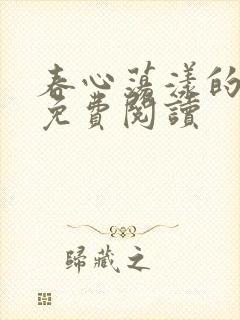 春心蕩漾的
免費閱讀
歸藏之